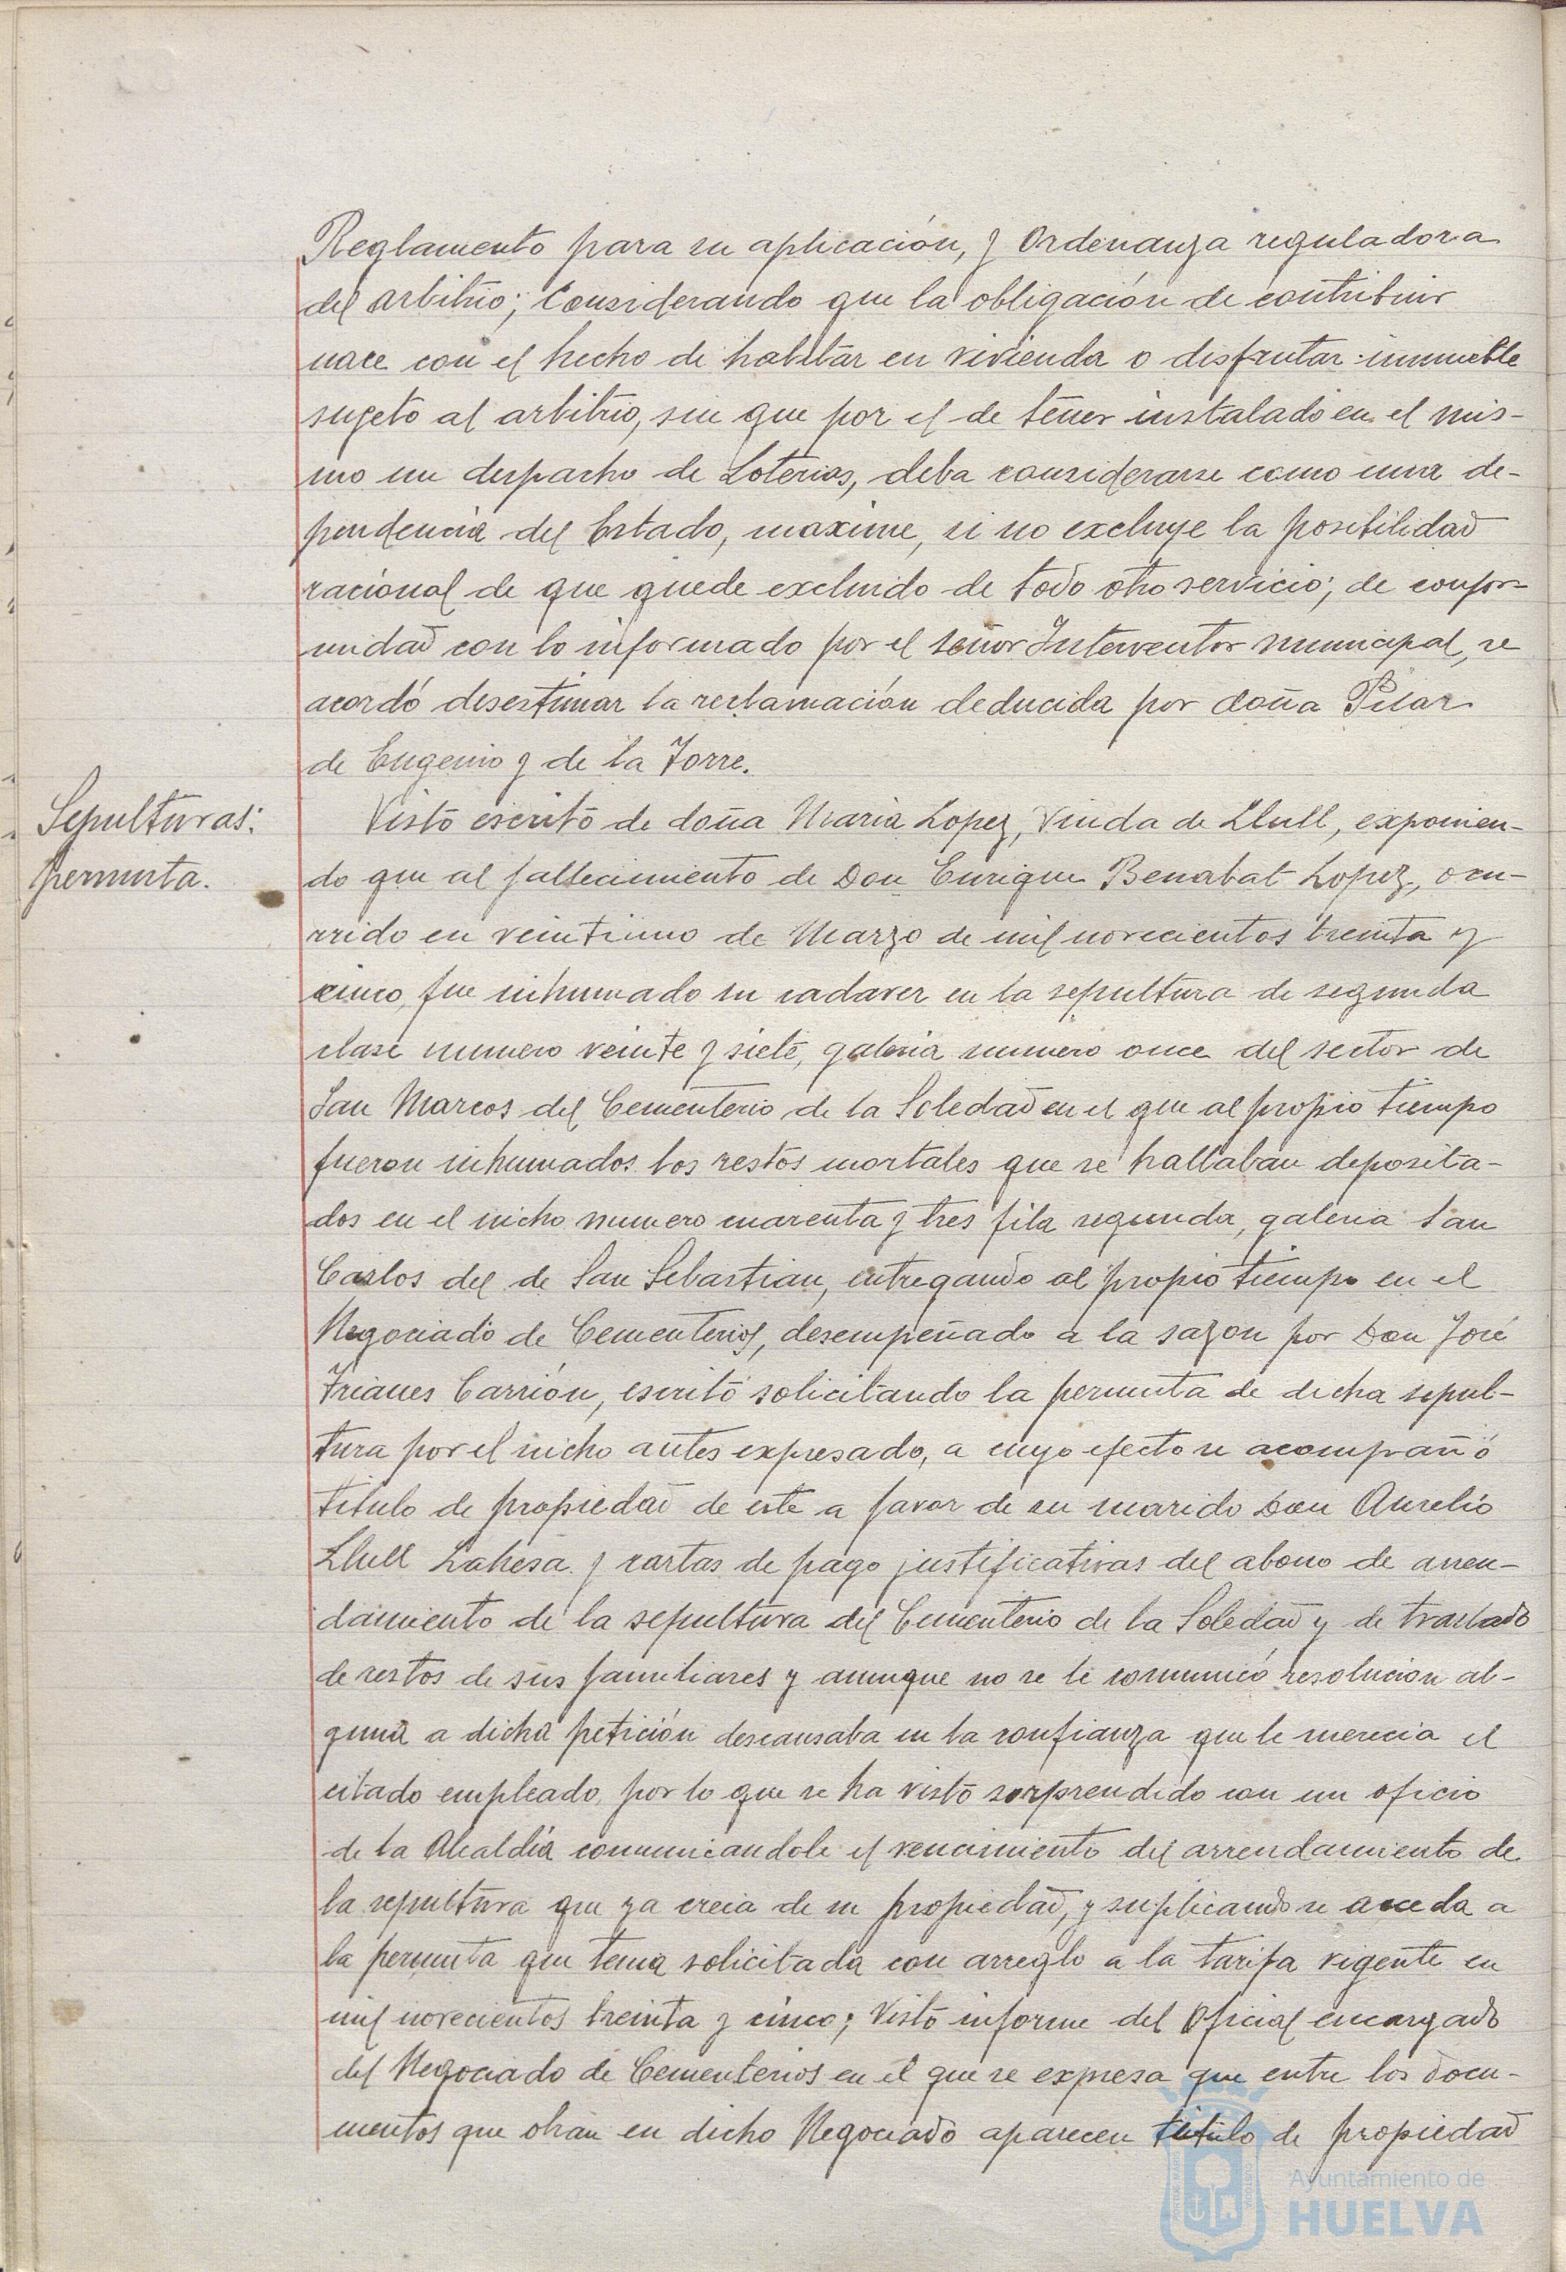 Reglamento para su aplicación, y Ordenanza reguladora
del arbitrio; Considerando que la obligación de contribuir
nace con el hecho de habitar en vivienda o disfrutar inmueble
sugeto al arbitrio, sin que por el de tener instalado en el mis-
mo un despacho de Loterias, deba considerarse como una de-
pendencia del Estado, maxime, si no excluye la posibilidad
racional de que quede excluido de todo otro servicio; de confor-
midad con lo informado por el señor Interventor municipal, se
acordó desestimar la reclamación deducida por doña Pilar
de Eugenio y de la Torre.
Sepulturas:
permuta.
Visto escrito de doña Maria Lopez, Viuda de Llull, exponien-
do que al fallecimiento de Don Enrique Benabat Lopez, ocu-
rrido en veintiuno de Marzo de mil novecientos treinta y
cinco, fue inhumado su cadaver en la sepultura de segunda
clase numero veinte y siete, galeria numero once del sector de
San Marcos del Cementerio de la Soledad en el que al propio tiempo
fueron inhumados los restos mortales que se hallaban deposita-
dos en el nicho numero cuarenta y tres fila segunda, galeria San
Carlos del de San Sebastian, entregando al propio tiempo en el
Negociado de Cementerios, desempeñado a la sazon por Don José
Trianes Carrión, escrito solicitando la permuta de dicha sepul-
tura por el nicho antes expresado, a cuyo efecto se acompañó
titulo de propiedad de este a favor de su marido Don Aurelio
Llull Lahesa y cartas de pago justificativas del abono de arren-
damiento de la sepultura del Cementerio de la Soledad y de traslado
de restos de sus familiares y aunque no se le comunicó resolucion al-
guna a dicha petición descansaba en la confianza que le merecia el
citado empleado, por lo que se ha visto sorprendido con un oficio
de la Alcaldía comunicandole el vencimiento del arrendamiento de
la sepultura que ya creia de su propiedad, y suplicando se acceda a
la permuta que tenia solicitada con arreglo a la tarifa vigente en
mil novecientos treinta y cinco; Visto informe del Oficial encargado
del Negociado de Cementerios en el que se expresa que entre los docu-
mentos que obran en dicho Negociado aparecen titulo de propiedad
Ayuntamiento de
HUELVA